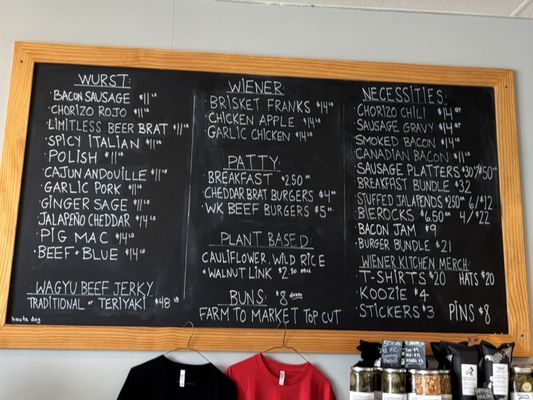 WURST:
BACON SAUSAGE $11 LB
CHORIZO ROJO $11 LB
LIMITLESS BEER BRAT $11 LB
SPICY ITALIAN $11 LB
POLISH $11 LB
CAJUN ANDOUILLE $11 LB
GARLIC PORK $11 LB
GINGER SAGE $11 LB
JALAPEÑO CHEDDAR $14 LB
PIG MAC $14 LB
BEEF + BLUE $14 LB
WAGYU BEEF JERKY
TRADITIONAL OR TERIYAKI $48 LB
haute dog
WIENER
BRISKET FRANKS $14 LB
CHICKEN APPLE $14 LB
GARLIC CHICKEN $14 LB
PATTY
BREAKFAST $2.50 EA
CHEDDAR BRAT BURGERS $4 EA
WK BEEF BURGERS $5 EA
PLANT BASED
CAULIFLOWER, WILD RICE
+ WALNUT LINK $2.50 EACH
BUNS: $8 DOZEN
FARM TO MARKET TOP CUT
NECESSITIES:
CHORIZO CHILI $14 QT
SAUSAGE GRAVY $14 QT
SMOKED BACON $14 LB
CANADIAN BACON $11 LB
SAUSAGE PLATTERS $30/$50
BREAKFAST BUNDLE $32
STUFFED JALAPENOS $2.50 EA 6/$12
BIEROCKS $6.50 EA 4/$22
BACON JAM $9
BURGER BUNDLE $21
WIENER KITCHEN MERCH:
T-SHIRTS $20 HATS $20
KOOZIE $4
STICKERS $3 PINS $8